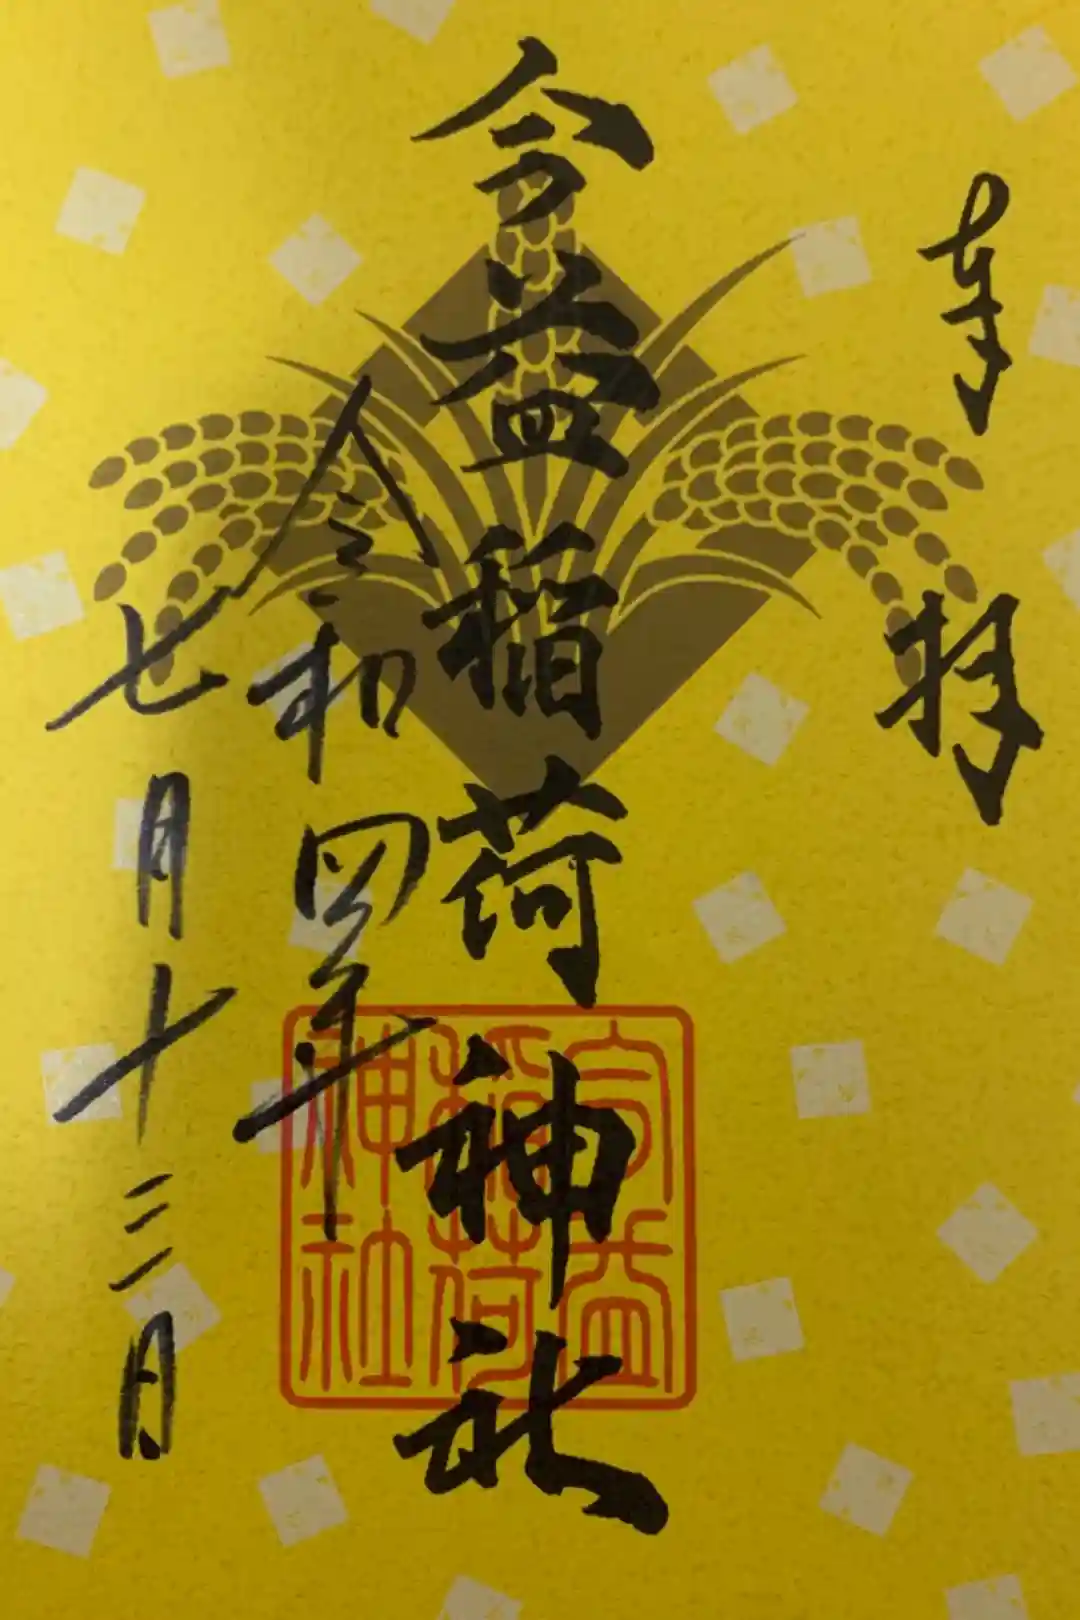 奉拝
今益稲荷神社
令和四年
七月十三日
稲荷
神社